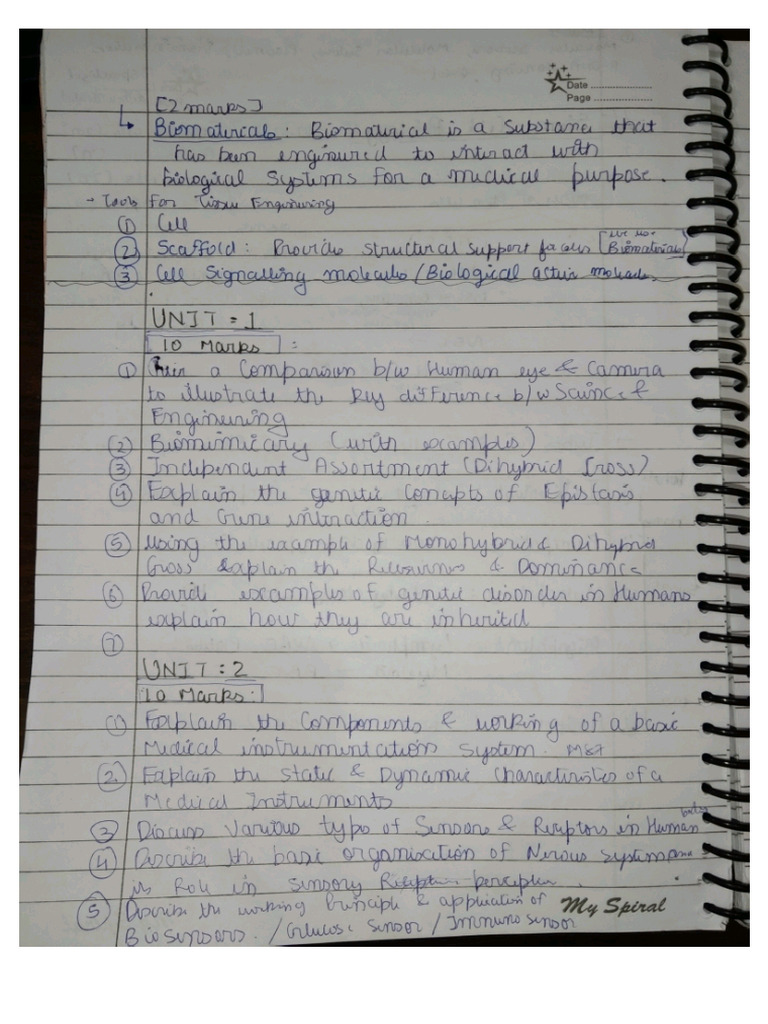 Date ..................
Page ..................
[2 marks]
Biomaterials : Biomaterial is a substance that
has been engineered to interact with
biological systems for a medical purpose.
- Tools for Tissue Engineering
① Cell
② Scaffold : Provide structural support for cells [we use Biomaterials]
③ Cell Signalling molecules / Biological active molecules.
UNIT = 1
10 Marks :
① a Comparison b/w Human eye & Camera
to illustrate the key difference b/w Science &
Engineering
② Biomimicary (with examples)
③ Independent Assortment (Dihybrid Cross)
④ Explain the genetic Concepts of Epistasis
and Gene interaction.
⑤ Using the example of Monohybrid & Dihybrid
Cross Explain the Recessiveness & Dominance
⑥ Provide examples of genetic disorder in Humans
explain how they are inherited
⑦
UNIT : 2
10 Marks:
① Explain the Components & working of a basic
Medical instrumentation system.
② Explain the static & Dynamic Characteristics of a
Medical Instruments
③ Discuss Various type of Sensors & Receptors in Human body
④ Describe the basic organisation of Nervous system and
is Role in sensory perception.
⑤ Describe the working Principle & application of
My Spiral
BioSensors. / Glucose Sensor / Immuno sensor